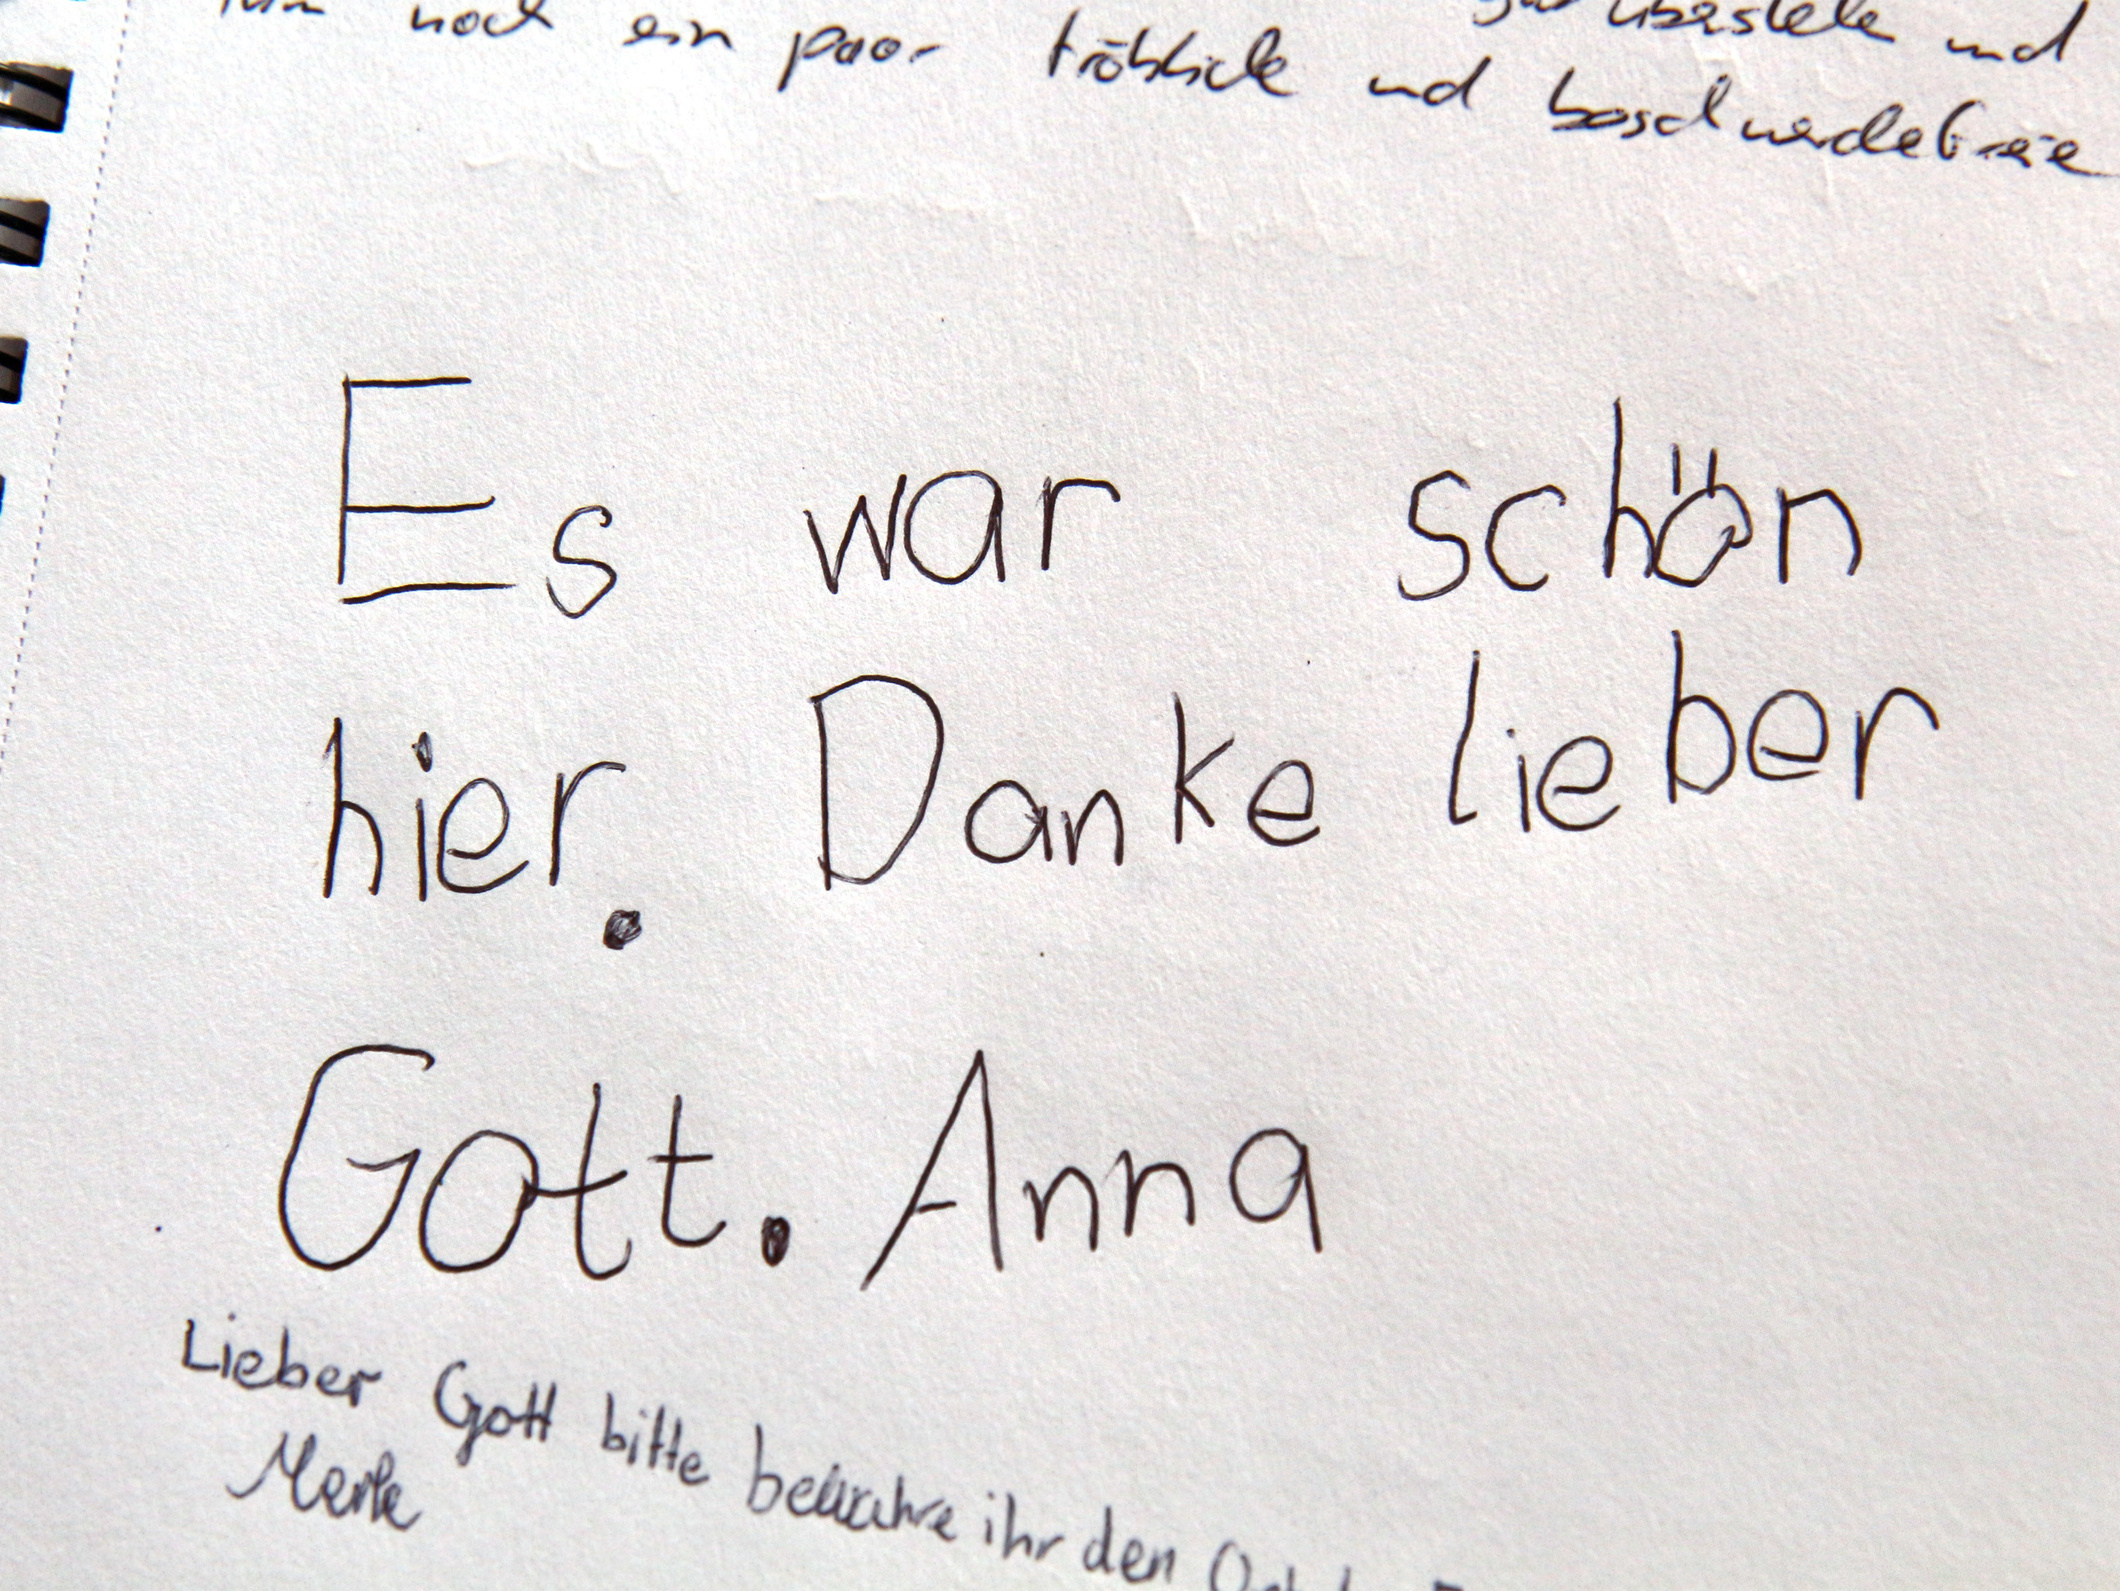 überstehe und
ihm noch ein paar fröhliche und beschwerdefreie
Es war schön
hier. Danke lieber
Gott. Anna
Lieber Gott bitte bewahre ihr den
Merle